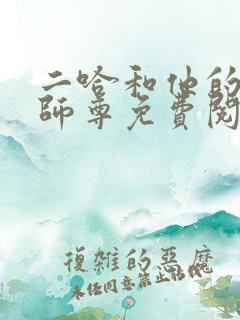 二哈和他的
師尊免費閱
復雜的惡魔
未经同意禁止转载